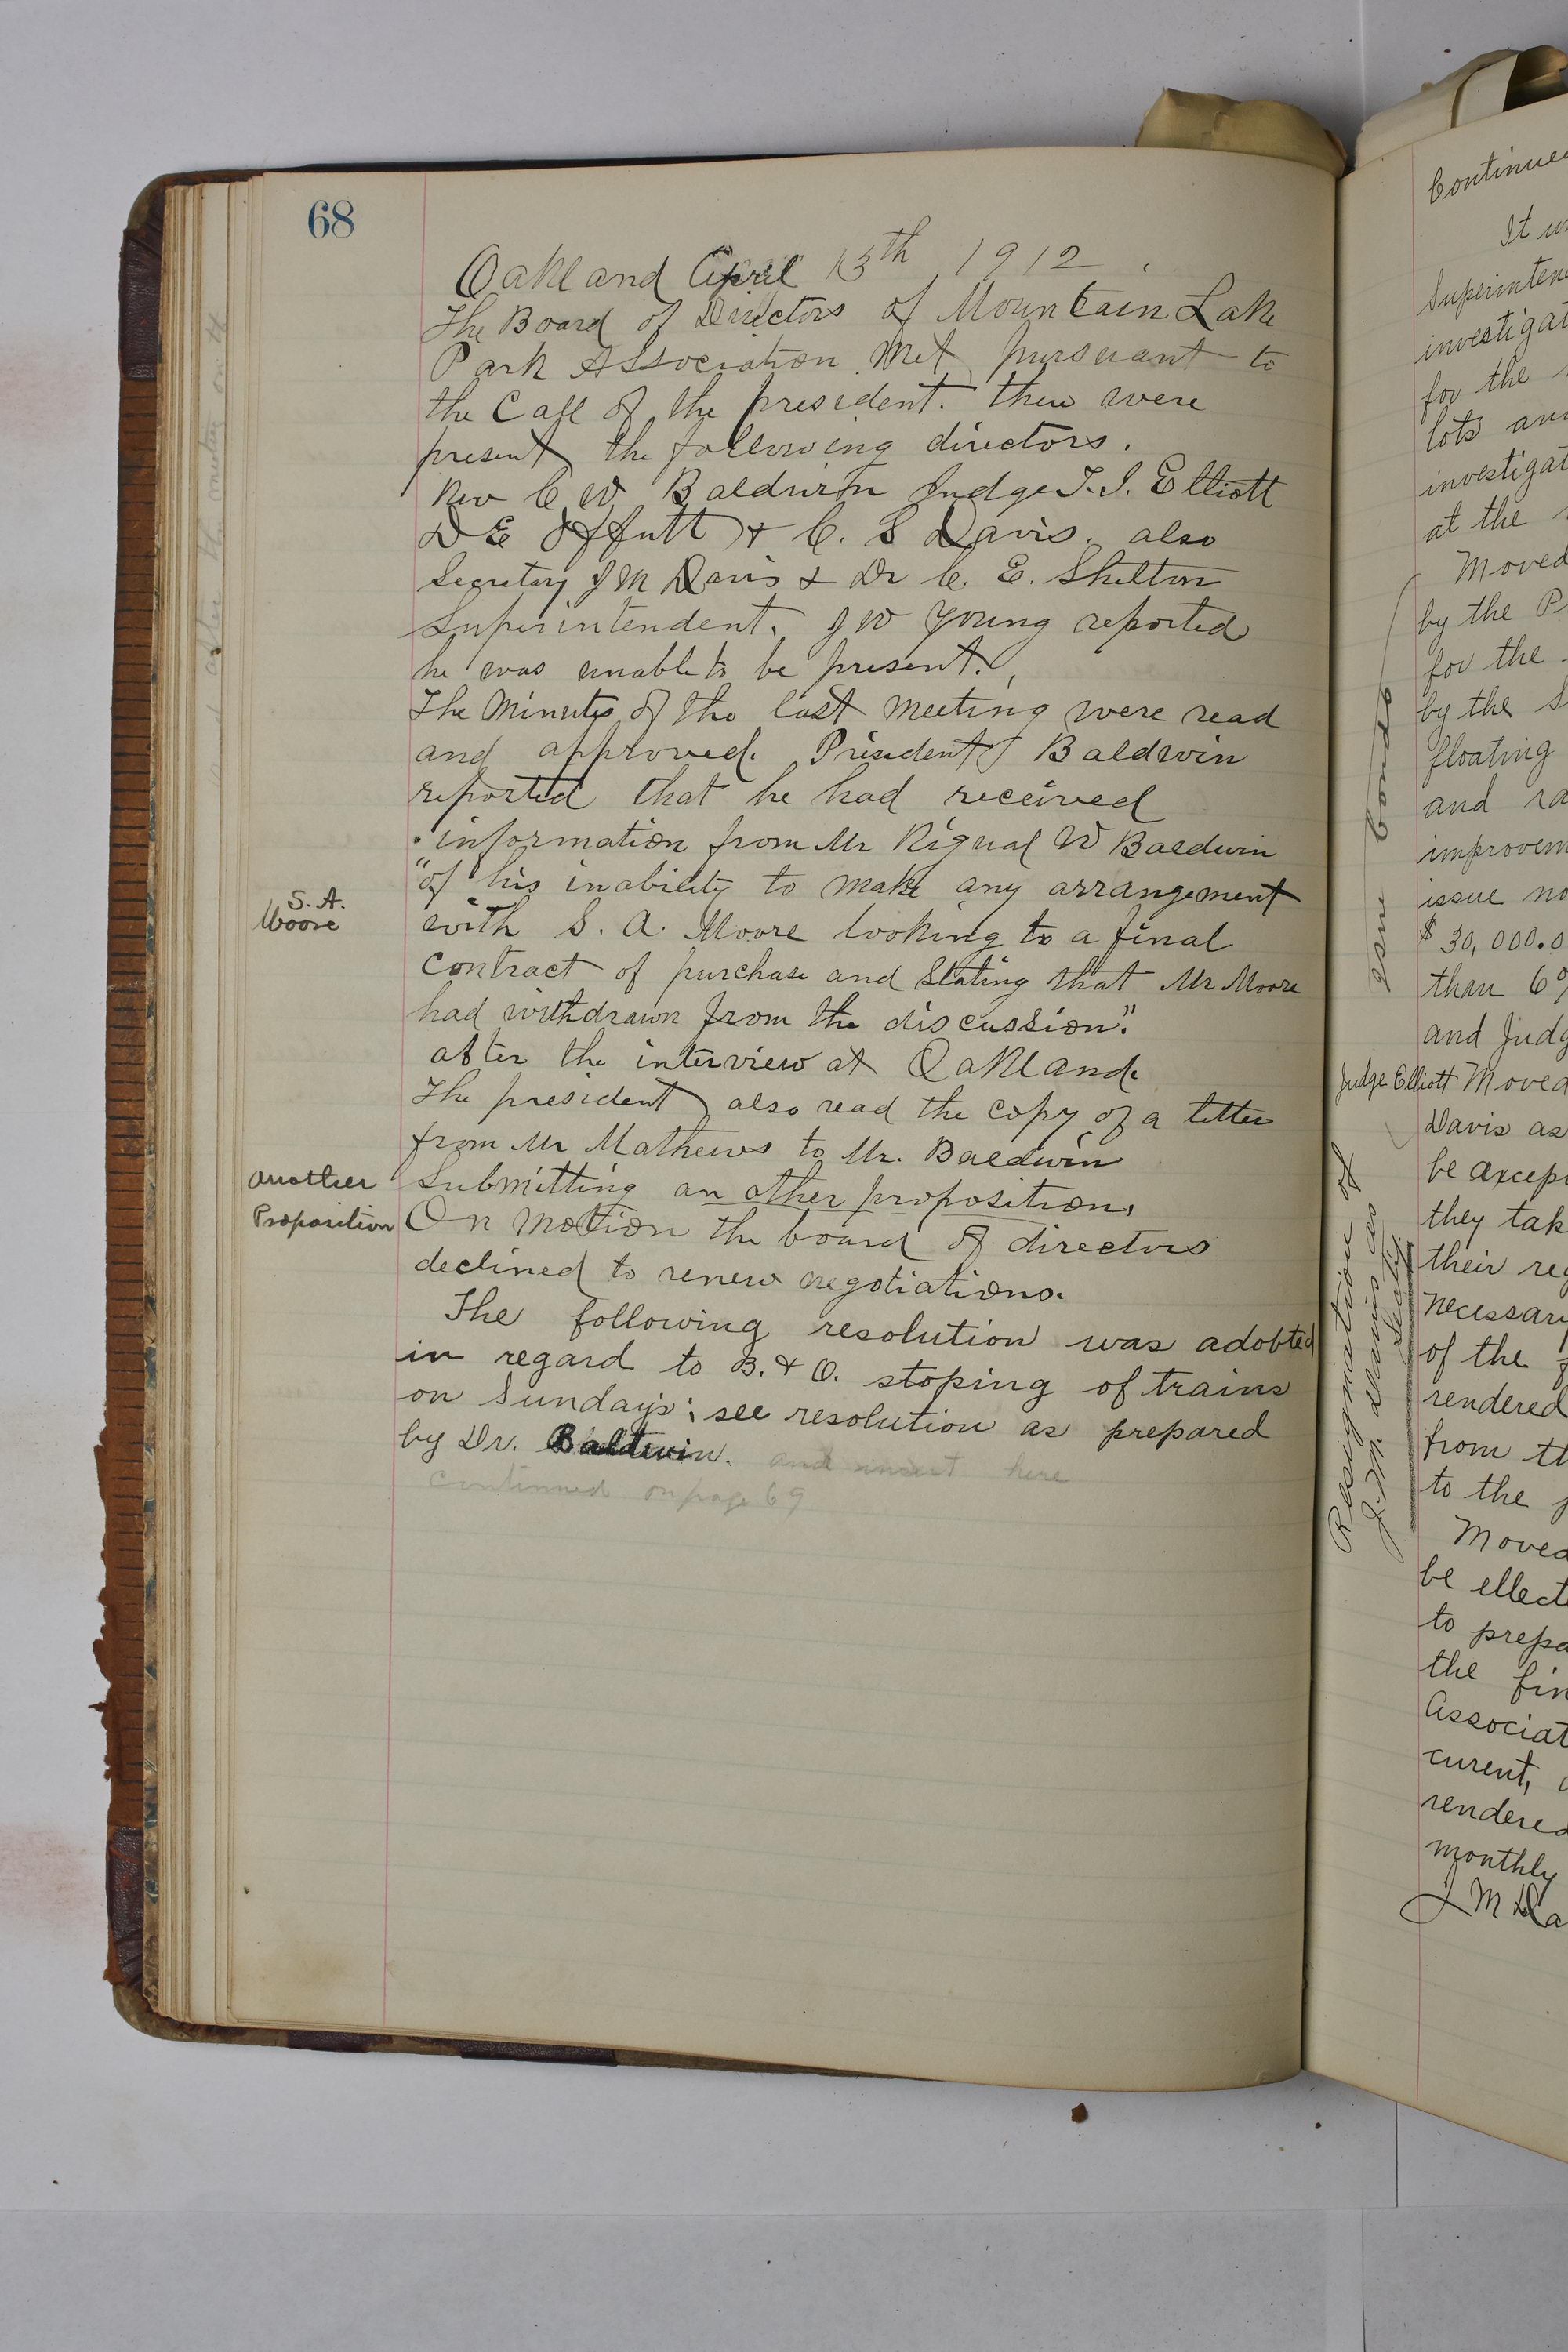 68
Oakland April 13th 1912.
The Board of Directors of Mountain Lake
Park Association Met pursuant to
the Call of the president. there were
present the following directors.
Rev C W Baldwin Judge T. J. Elliott
D E Offutt & C. S Davis. also
Secretary J M Davis & Dr C. E. Shelton
Superintendent. J W Young reported
he was unable to be present.
The Minutes of the last meeting were read
and approved. President Baldwin
reported that he had received
information from Mr Rignal W Baldwin
"of his inability to make any arrangement
S. A.
Moore
with S. A. Moore looking to a final
contract of purchase and Stating that Mr Moore
had withdrawn from the discussion".
after the interview at Oakland.
The president also read the copy of a letter
from Mr Mathews to Mr. Baldwin
Another
Proposition
Submitting an other proposition.
On Motion the board of directors
declined to renew negotiations.
The following resolution was adobted
in regard to B. & O. stoping of trains
on Sundays; see resolution as prepared
by Dr. Baldwin. and insert here
continued on page 69
It
for the
lots
at the
Moved
by the
for the
by the
floating
and
issue
$ 30,000.0
than
and
Judge Elliott Moved
Davis as
be
they
their
of the
rendered
from
to the
Moved
be
to
the
rendered
monthly
J M
bonds
Resignation of
J. M. Davis as